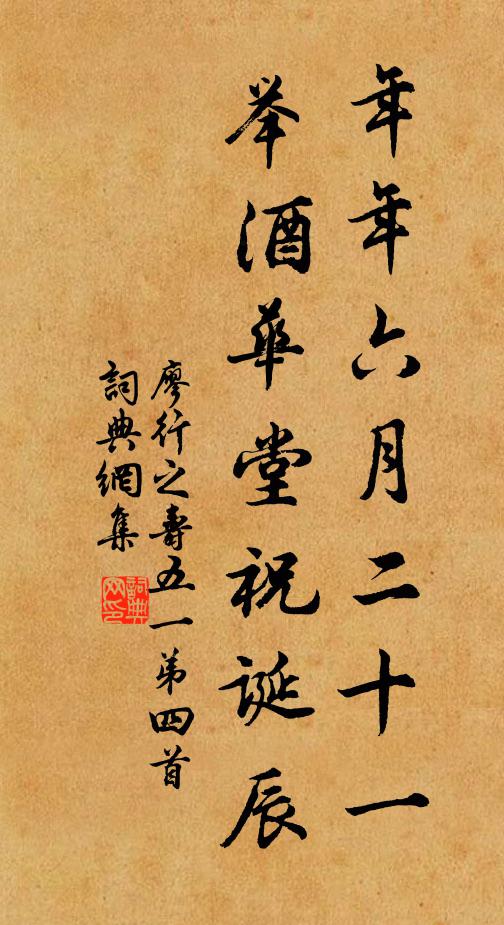 年年六月二十一
举酒華堂祝誕辰
廖行之壽五一第四首
詞典網集
詞典网印